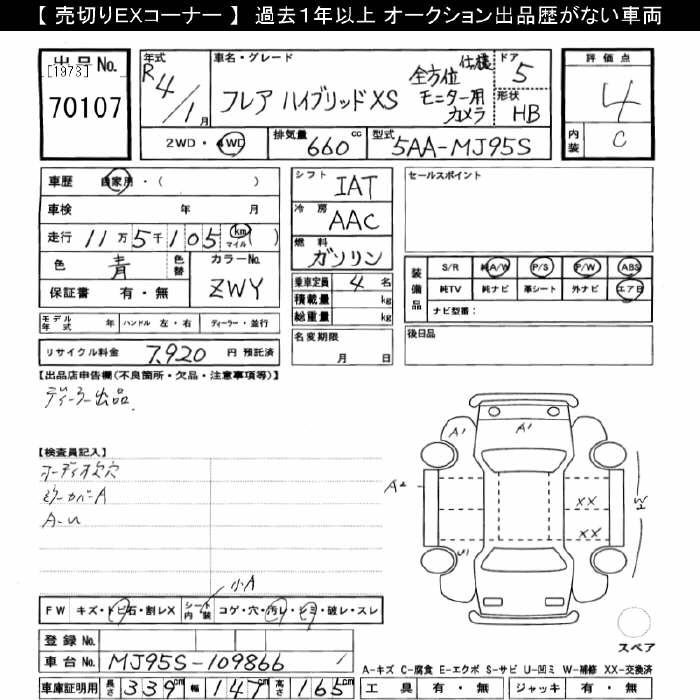 【 売切りEXコーナー 】 過去１年以上 オークション出品歴がない車両
出品 No.
[1973]
70107
年式
R4/1月
車名・グレード
フレア ハイブリッドXS
全方位
モニター用
カメラ
仕様
ドア
5
形状
HB
2WD・4WD
排気量
660 cc
型式
5AA-MJ95S
評価点
4
内装
C
車歴 自家用・( )
車検 年 月
走行 11万5千105 km マイル ( )
色 青 色替
カラーNo.
ZWY
保証書 有・無
モデル年式 年 ハンドル 左・右 ディーラー・並行
リサイクル料金 7,920 円 預託済
シフト
IAT
冷房
AAC
燃料
ガソリン
乗車定員 4 名
積載量 kg
総重量 kg
名変期限
月 日
セールスポイント
装備品
S/R 純A/W P/S P/W ABS
純TV 純ナビ 革シート 外ナビ エアB
ナビ型番：
後日品
【出品店申告欄(不良箇所・欠品・注意事項等)】
ディーラー出品
【検査員記入】
オーディオ欠穴
ミラーカバーA
A-U
A1
A1
A2
XX
XX
U1
W
小A
FW キズ・トビ石・割レX シート内装 コゲ・穴・汚レ・シミ・破レ・スレ
登録 No.
車台 No. MJ95S-109866
車庫証明用 長さ 339cm 幅 147cm 高さ 165cm
スペア
A-キズ C-腐食 E-エクボ S-サビ U-凹ミ W-補修 XX-交換済
工具 有・無 ジャッキ 有・無